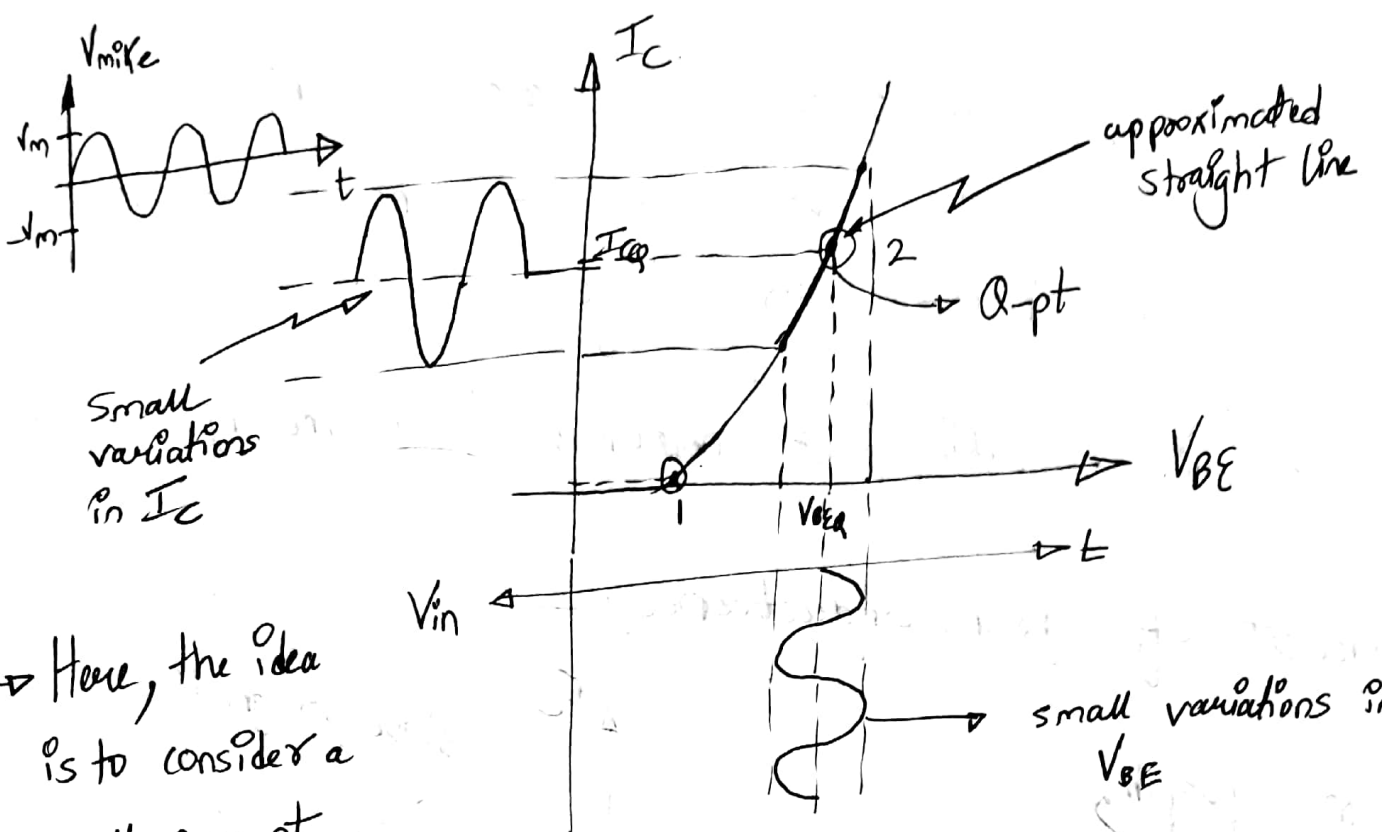 Vmike
Vm
-Vm
t
IC
ICQ
approximated
straight line
2
Q-pt
Small
variations
in IC
1
VBEQ
VBE
t
Vin
Here, the idea
is to consider a
small variations in
VBE